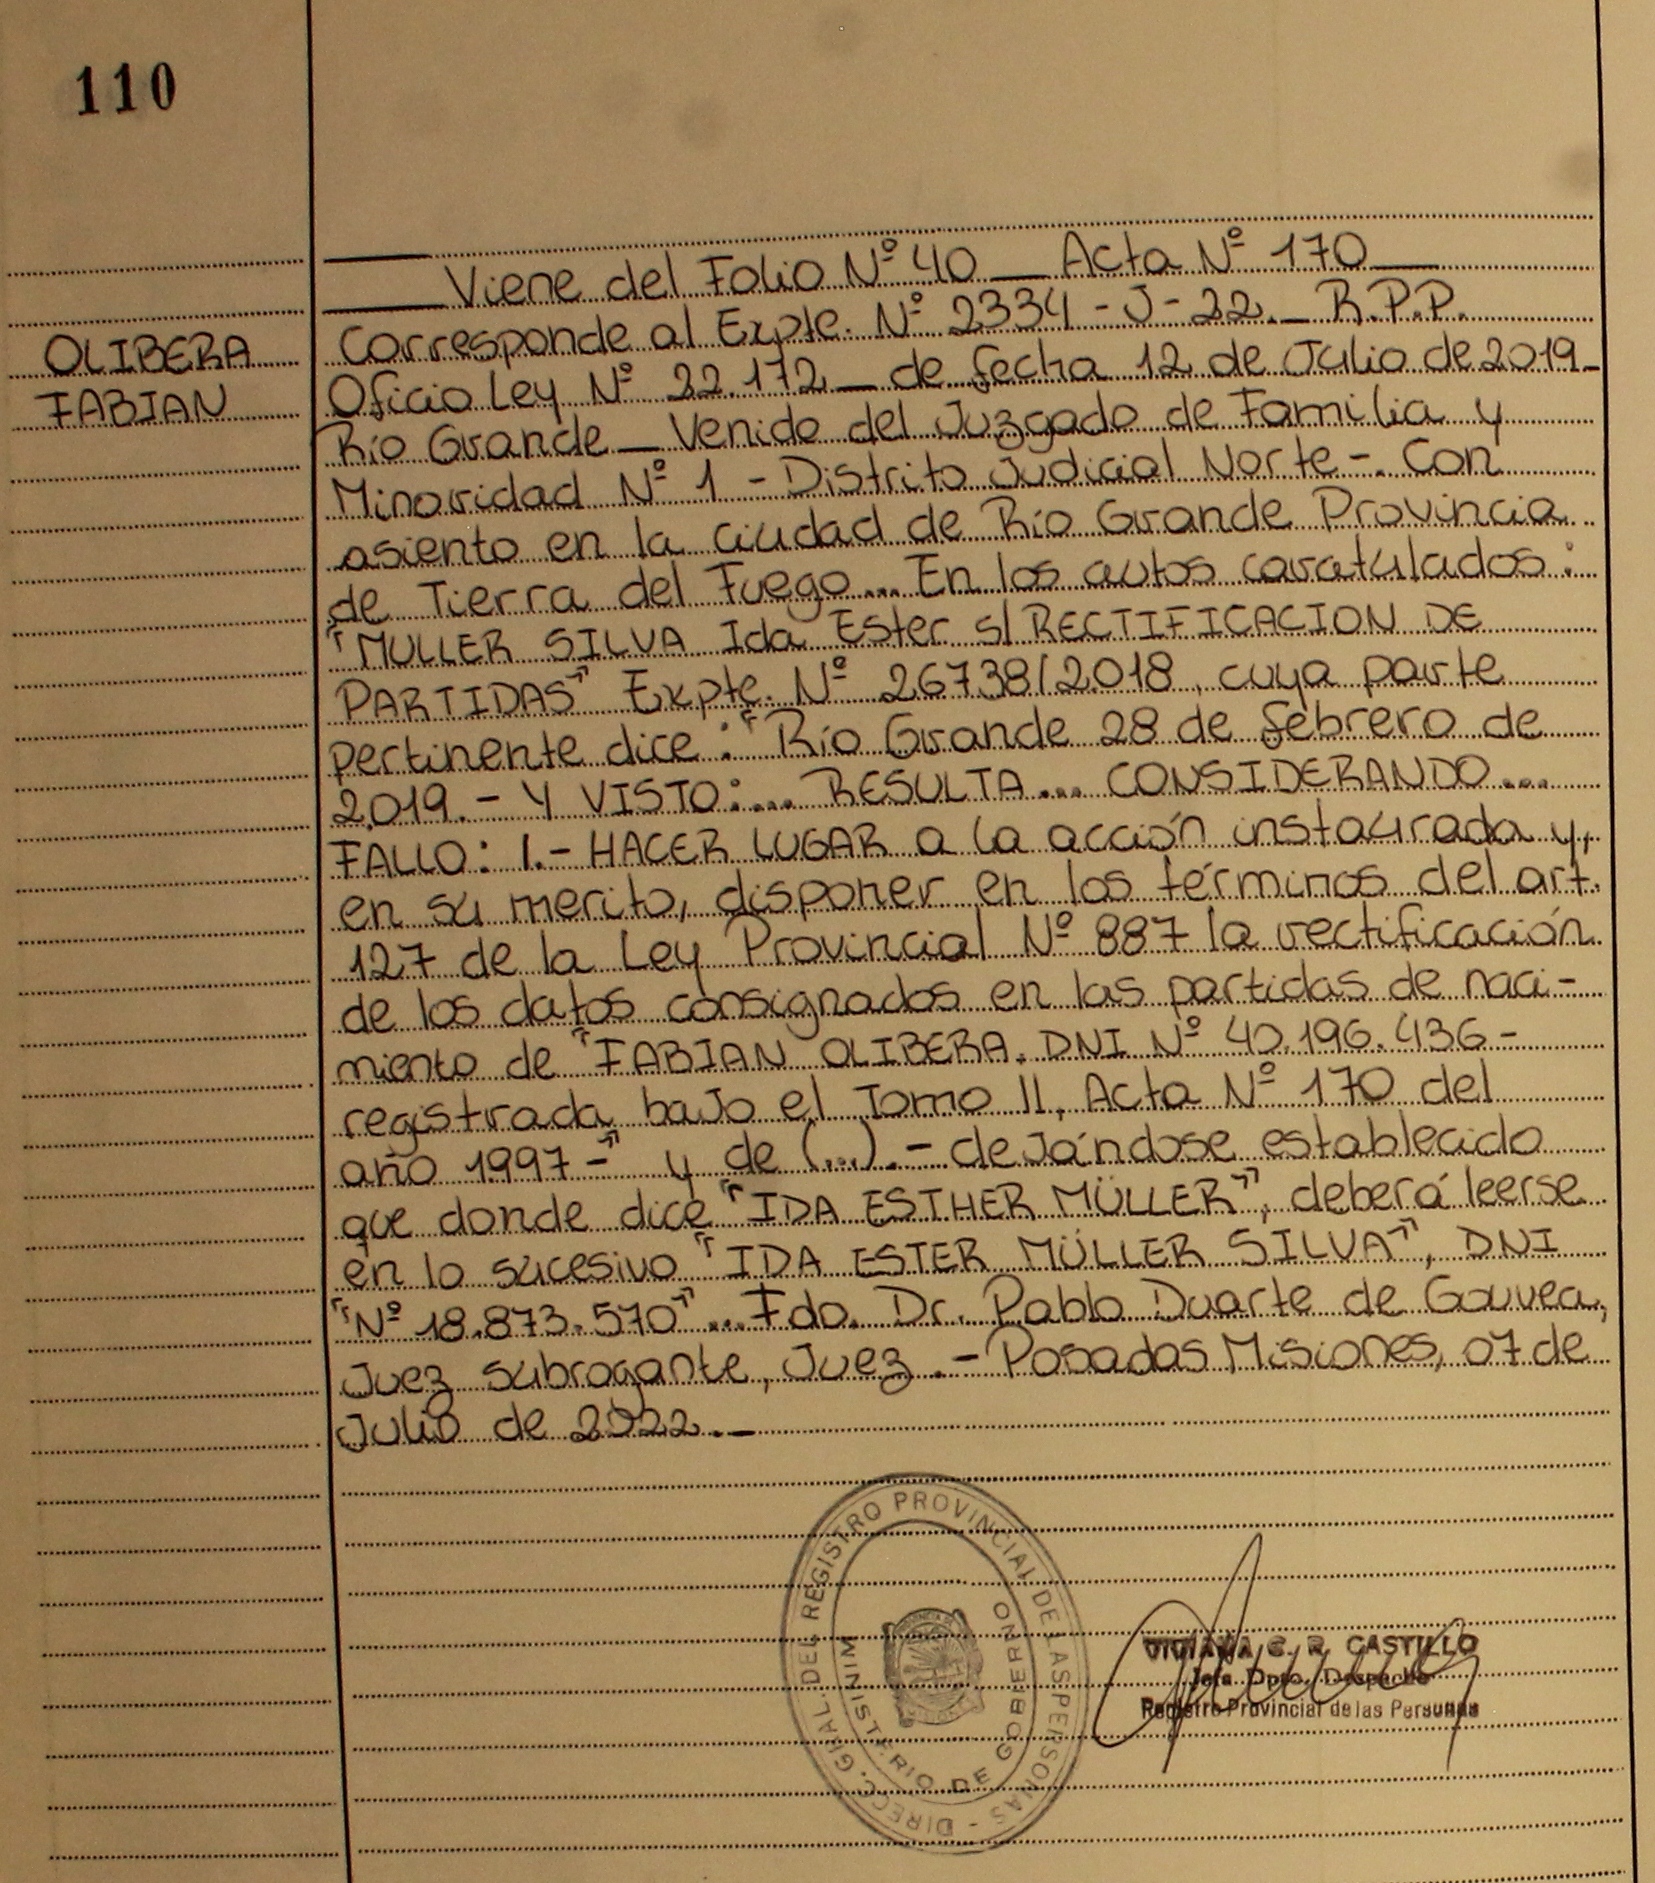 110
OLIBERA
FABIAN
Viene del Folio Nº 40 — Acta Nº 170
Corresponde al Expte. Nº 2334 - J - 22. — R.P.P.
Oficio Ley Nº 22.172 — de fecha 12 de Julio de 2019 -
Río Grande — Venido del Juzgado de Familia y
Minoridad Nº 1 - Distrito Judicial Norte -. Con
asiento en la ciudad de Río Grande Provincia
de Tierra del Fuego... En los autos caratulados:
"MULLER SILVA Ida Ester s/ RECTIFICACION DE
PARTIDAS" Expte. Nº 26738/2018, cuya parte
pertinente dice: "Río Grande 28 de febrero de
2019. - Y VISTO:... RESULTA... CONSIDERANDO...
FALLO: 1.- HACER LUGAR a la acción instaurada y,
en su merito, disponer en los términos del art.
127 de la Ley Provincial Nº 887 la rectificación
de los datos consignados en las partidas de naci-
miento de "FABIAN OLIBERA. DNI Nº 40.196.436 -
registrada bajo el Tomo II, Acta Nº 170 del
año 1997 -" y de (...). - dejándose establecido
que donde dice "IDA ESTHER MÜLLER", deberá leerse
en lo sucesivo "IDA ESTER MÜLLER SILVA", DNI
"Nº 18.873.570"... Fdo. Dr. Pablo Duarte de Gouvea,
Juez subrogante, Juez. - Posadas Misiones, 07 de
Julio de 2022. -
DIRECC. GRAL. DEL REGISTRO PROVINCIAL DE LAS PERSONAS -
MINISTERIO DE GOBIERNO
VIVIANA E. R. CASTILLO
Jefa Dpto. Despacho
Registro Provincial de las Personas